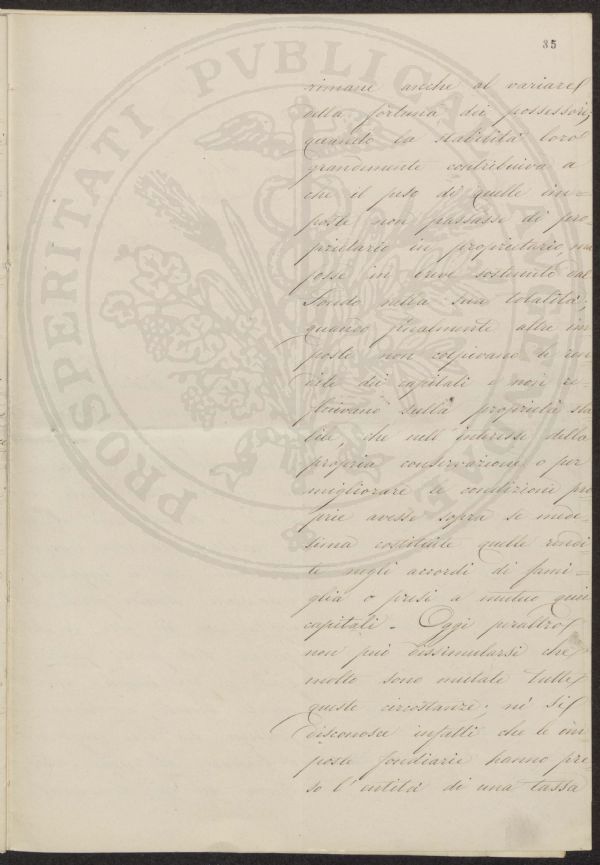 35
PROSPERITATI PVBLICA
rimane anche al variare
della fortuna dei possessori;
quando la stabilità loro
grandemente contribuiva a
che il peso di quelle im-
poste non passasse di pro-
prietario in proprietario, ma
fosse in breve sostenuto dal
fondo nella sua totalità;
quando finalmente altre im
poste non colpivano le ren-
dite dei capitali e non re-
fluivano sulla proprietà sta
bile, che nell'interesse della
propria conservazione o per
migliorare le condizioni pro
prie avesse sopra se mede-
sima costituite quelle rendi
te negli accordi di fami-
glia o presi a mutuo quei
capitali - Oggi peraltro
non può dissimularsi che
molto sono mutate tutte
queste circostanze; nè si
disconosce infatti che le im
poste fondiarie hanno pre-
so l'entità di una tassa